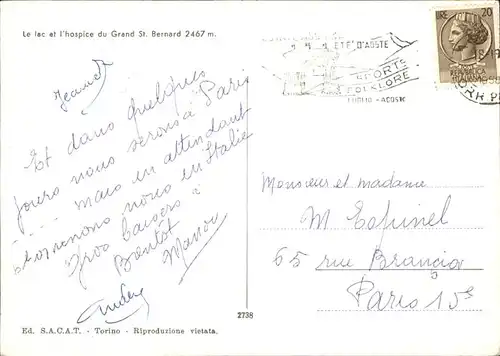 Le lac et l'hospice du Grand St. Bernard 2467 m.
Et dans quelques
jours nous serons à Paris
.... mais en attendant
nous en Italie
Gros baisers à
Bientôt
Manou
ETE' D'AOSTE
SPORTS
FOLKLORE
LUGLIO - AGOSTO
LIRE 20
Monsieur et madame
M Espinel
65 rue Brancion
Paris 15e
2738
Ed. S.A.C.A.T. - Torino - Riproduzione vietata.